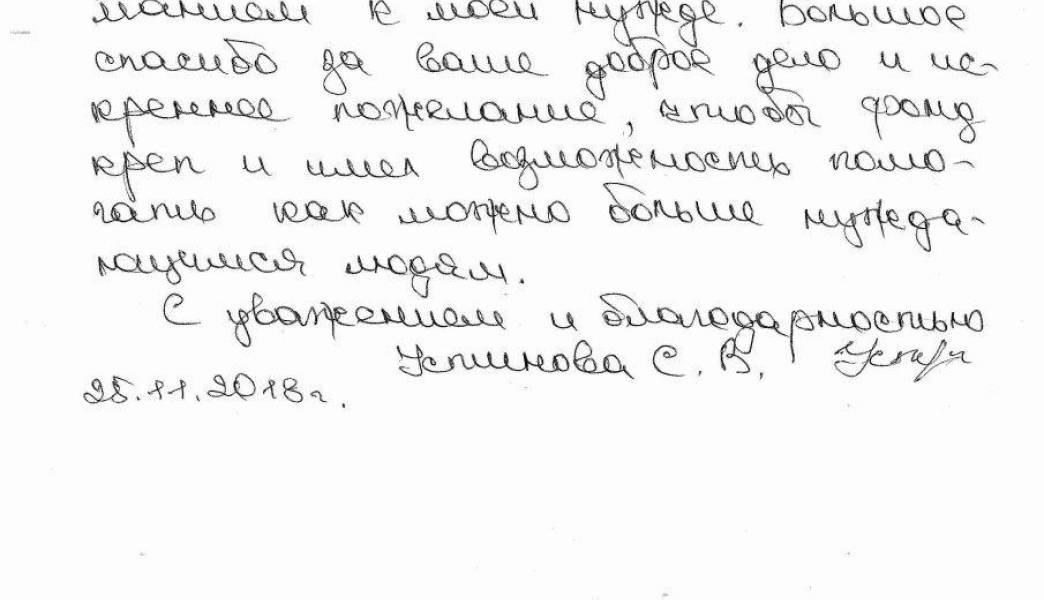 манием к моей нужде. Большое
спасибо за ваше доброе дело и ис-
креннее пожелание, чтобы фонд
креп и имел возможность помо-
гать как можно больше нужда-
ющимся людям.
С уважением и благодарностью
Устинова С. В.
25.11.2018г.